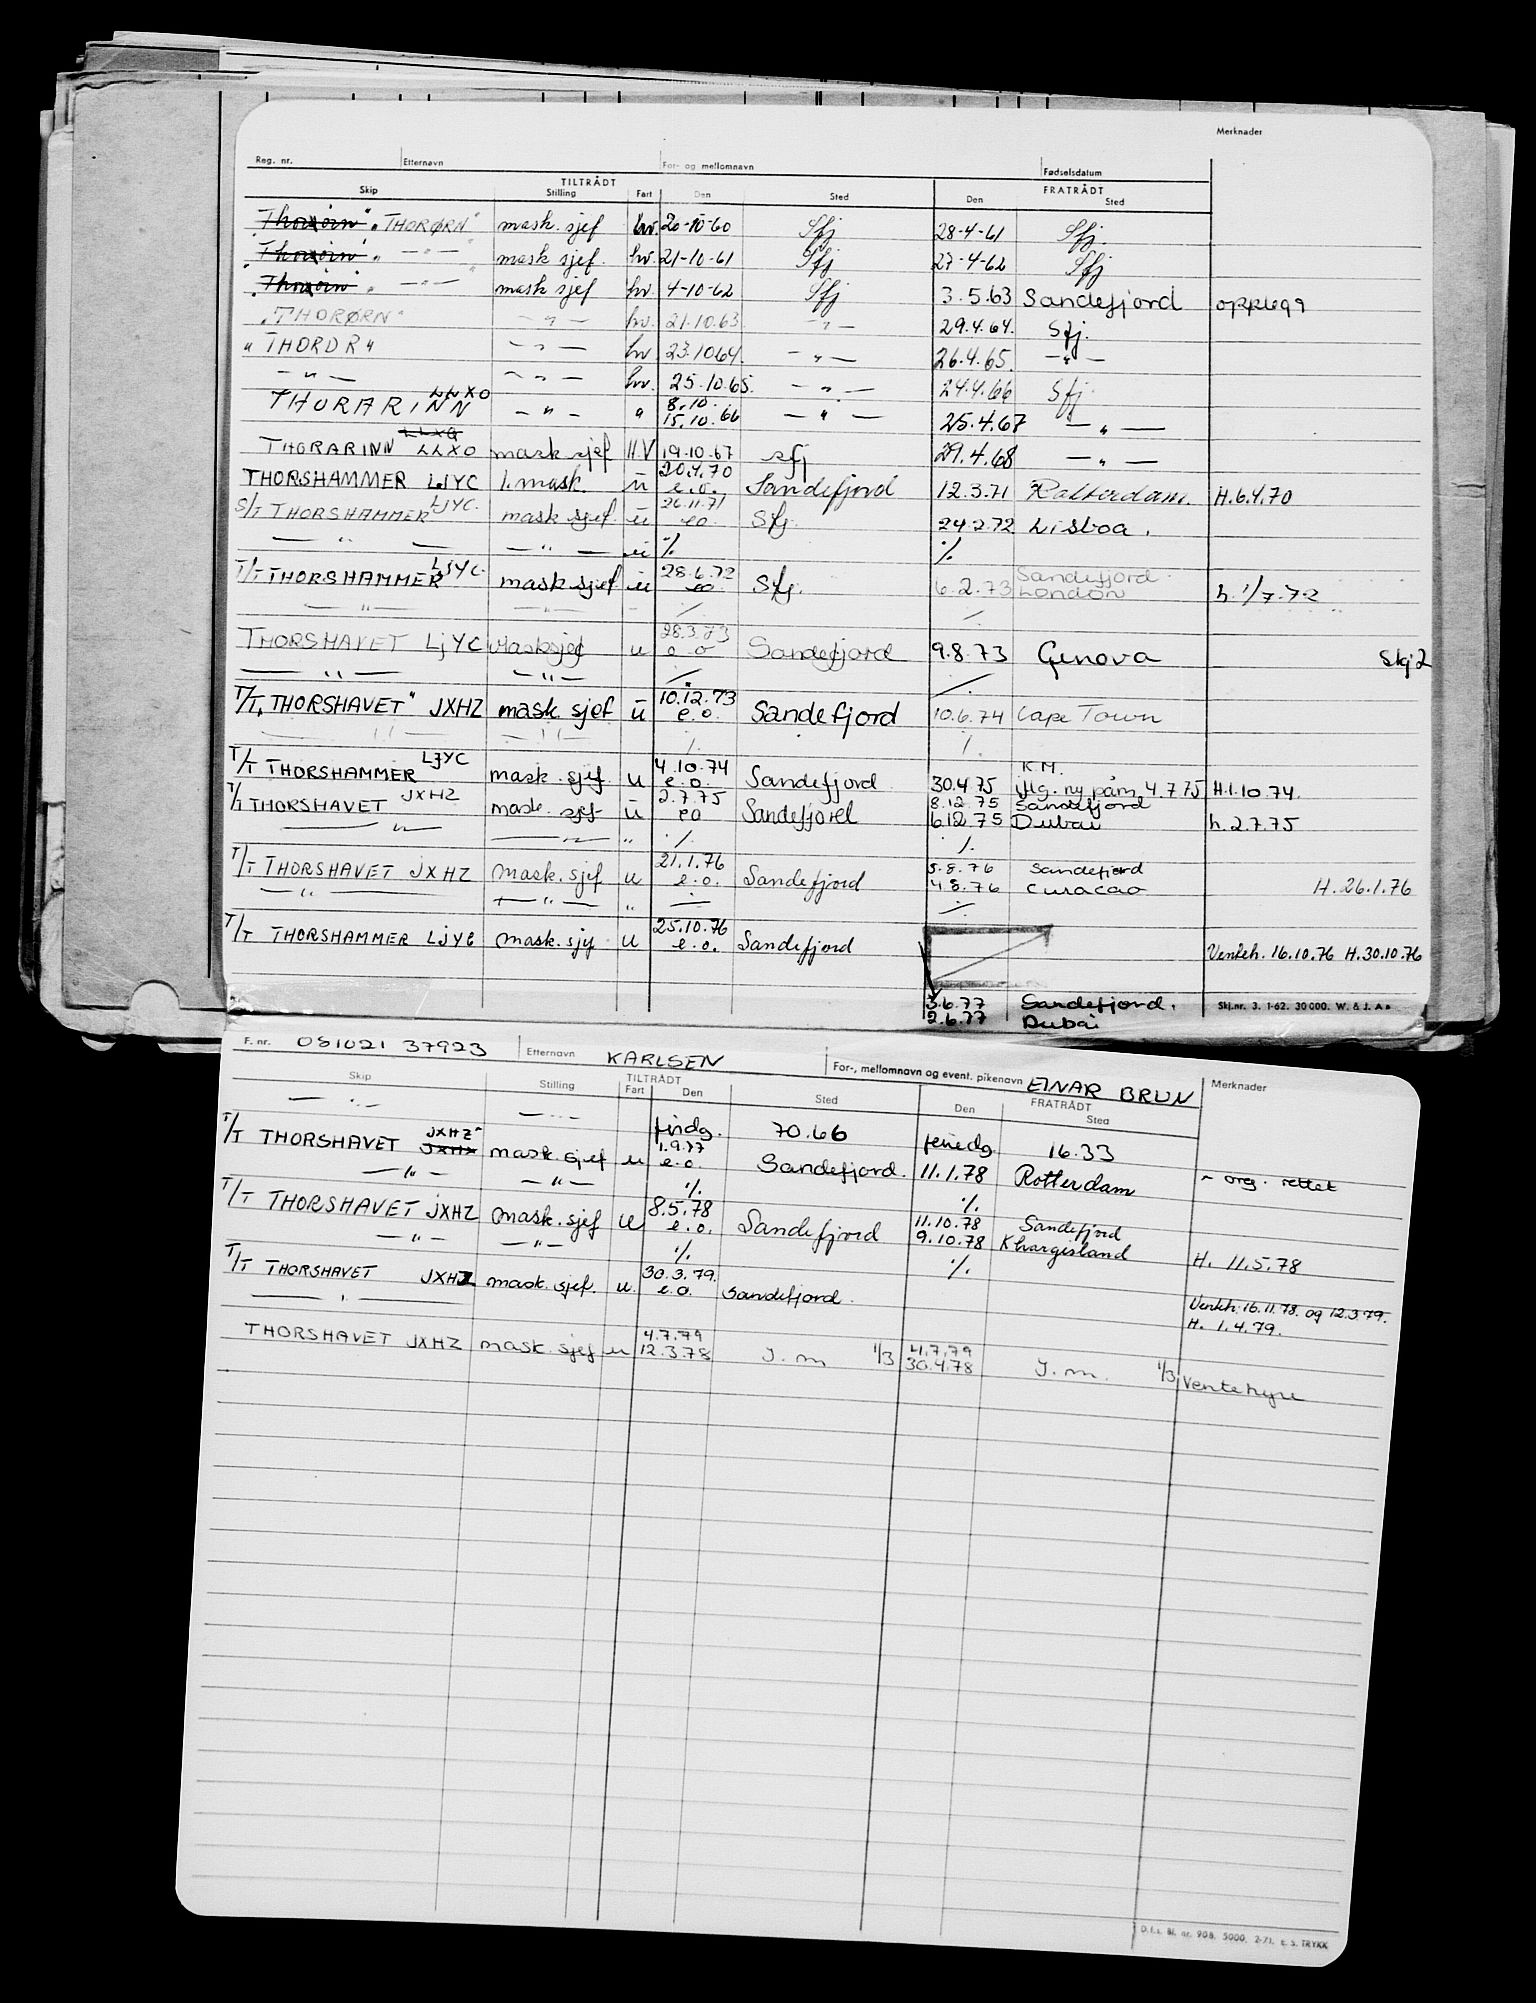 Merknader
Reg. nr. Etternavn For- og mellomnavn Fødselsdatum
TILTRÅDT FRATRÅDT
Skip Stilling Fart Den Sted Den Sted
"Thorørn" "THORØRN" mask. sjef hv. 20-10-60 Sfj 28-4-61 Sfj.
"Thorørn" " — " — " mask sjef. hv. 21-10-61 Sfj 27-4-62 Sfj
"Thorørn" " — " — mask sjef hv. 4-10-62 Sfj 3.5.63 Sandefjord opplegg
"THORØRN" — " — hv. 21.10.63 — " — 29.4.64. Sfj.
" THORDR " — " — hv 23.10 64. — " — 26.4.65. — " —
— " — — " — hv. 25.10.65. — " — 24.4.66 Sfj
THORARINN LLXO — " — " 8.10. 15.10.66 — " — 25.4.67 — " —
THORARINN LLXO mask sjef H.V 19.10.67 sfj 29.4.68 — " —
THORSHAMMER LJYC 1. mask. u 20.4.70 e.o. Sandefjord 12.3.71 Rotterdam. H.6.4.70
S/T THORSHAMMER LJYC. mask sjef. u 26.11.71 eo. Sfj. 24.2.72 Lisboa.
— " — — " — u ·/. ·/.
T/T THORSHAMMER LJYC. mask sjef u 28.6.72 eo. Sfj. 6.2.73 Sandefjord. London h. 1/7.72
— " — — " — ·/. ·/.
THORSHAVET LjYC Masksjef u 28.3.73 e o Sandefjord 9.8.73 Genova Skj 2
— " — — " — ·/. ·/.
T/T "THORSHAVET" JXHZ mask. sjef u 10.12.73 e.o. Sandefjord 10.6.74 Cape Town
— " — — " — ·/. ·/.
T/T THORSHAMMER LJYC mask. sjef. u 4.10.74 e.o. Sandefjord 30.4.75 K.M. iflg. ny påm. 4.7.75 H.1.10.74.
T/T THORSHAVET JXHZ mask. sjef u 2.7.75 eo Sandefjord 8.12.75 Sandefjord 6.12.75 Dubai h. 2.7.75
— " — — " — " ·/. ·/.
T/T THORSHAVET JXHZ mask. sjef u 21.1.76 e.o. Sandefjord 5.8.76 Sandefjord 4.8.76 Curacao H. 26.1.76
— " — — " — " ·/. ·/.
T/T THORSHAMMER LJYC mask. sjef u 25.10.76 e.o. Sandefjord Venteh. 16.10.76 H.30.10.76
3.6.77 Sandefjord. Skj.nr. 3. 1-62. 30 000. W. & J. A s
2.6.77 Dubai
F. nr. 081021 37923 Etternavn KARLSEN For-, mellomnavn og event. pikenavn EINAR BRUN Merknader
TILTRÅDT FRATRÅDT
Skip Stilling Fart Den Sted Den Sted
— " — — " — findg. 70.66 feriedg. 16.33
T/T THORSHAVET JXHZ JXHX mask. sjef u 1.9.77 e.o. Sandefjord. 11.1.78 Rotterdam ~ org. rettet
— " — — " — ·/. ·/.
T/T THORSHAVET JXHZ mask. sjef u 8.5.78 e.o. Sandefjord 11.10.78 Sandefjord 9.10.78 Khargisland H. 11.5.78
— " — — " — ·/. ·/.
T/T THORSHAVET JXHZ mask. sjef. u. 30.3.79. e.o. Sandefjord. Venteh. 16.11.78. og 12.3.79. H. 1.4.79.
— " —
THORSHAVET JXHZ mask. sjef u 4.7.79 12.3.78 J. m 1/3 4.7.79 30.4.78 J. m. 1/3 Ventehyre
D.f.s. Bl. nr. 908. 5000. 2-71. E. S. TRYKK